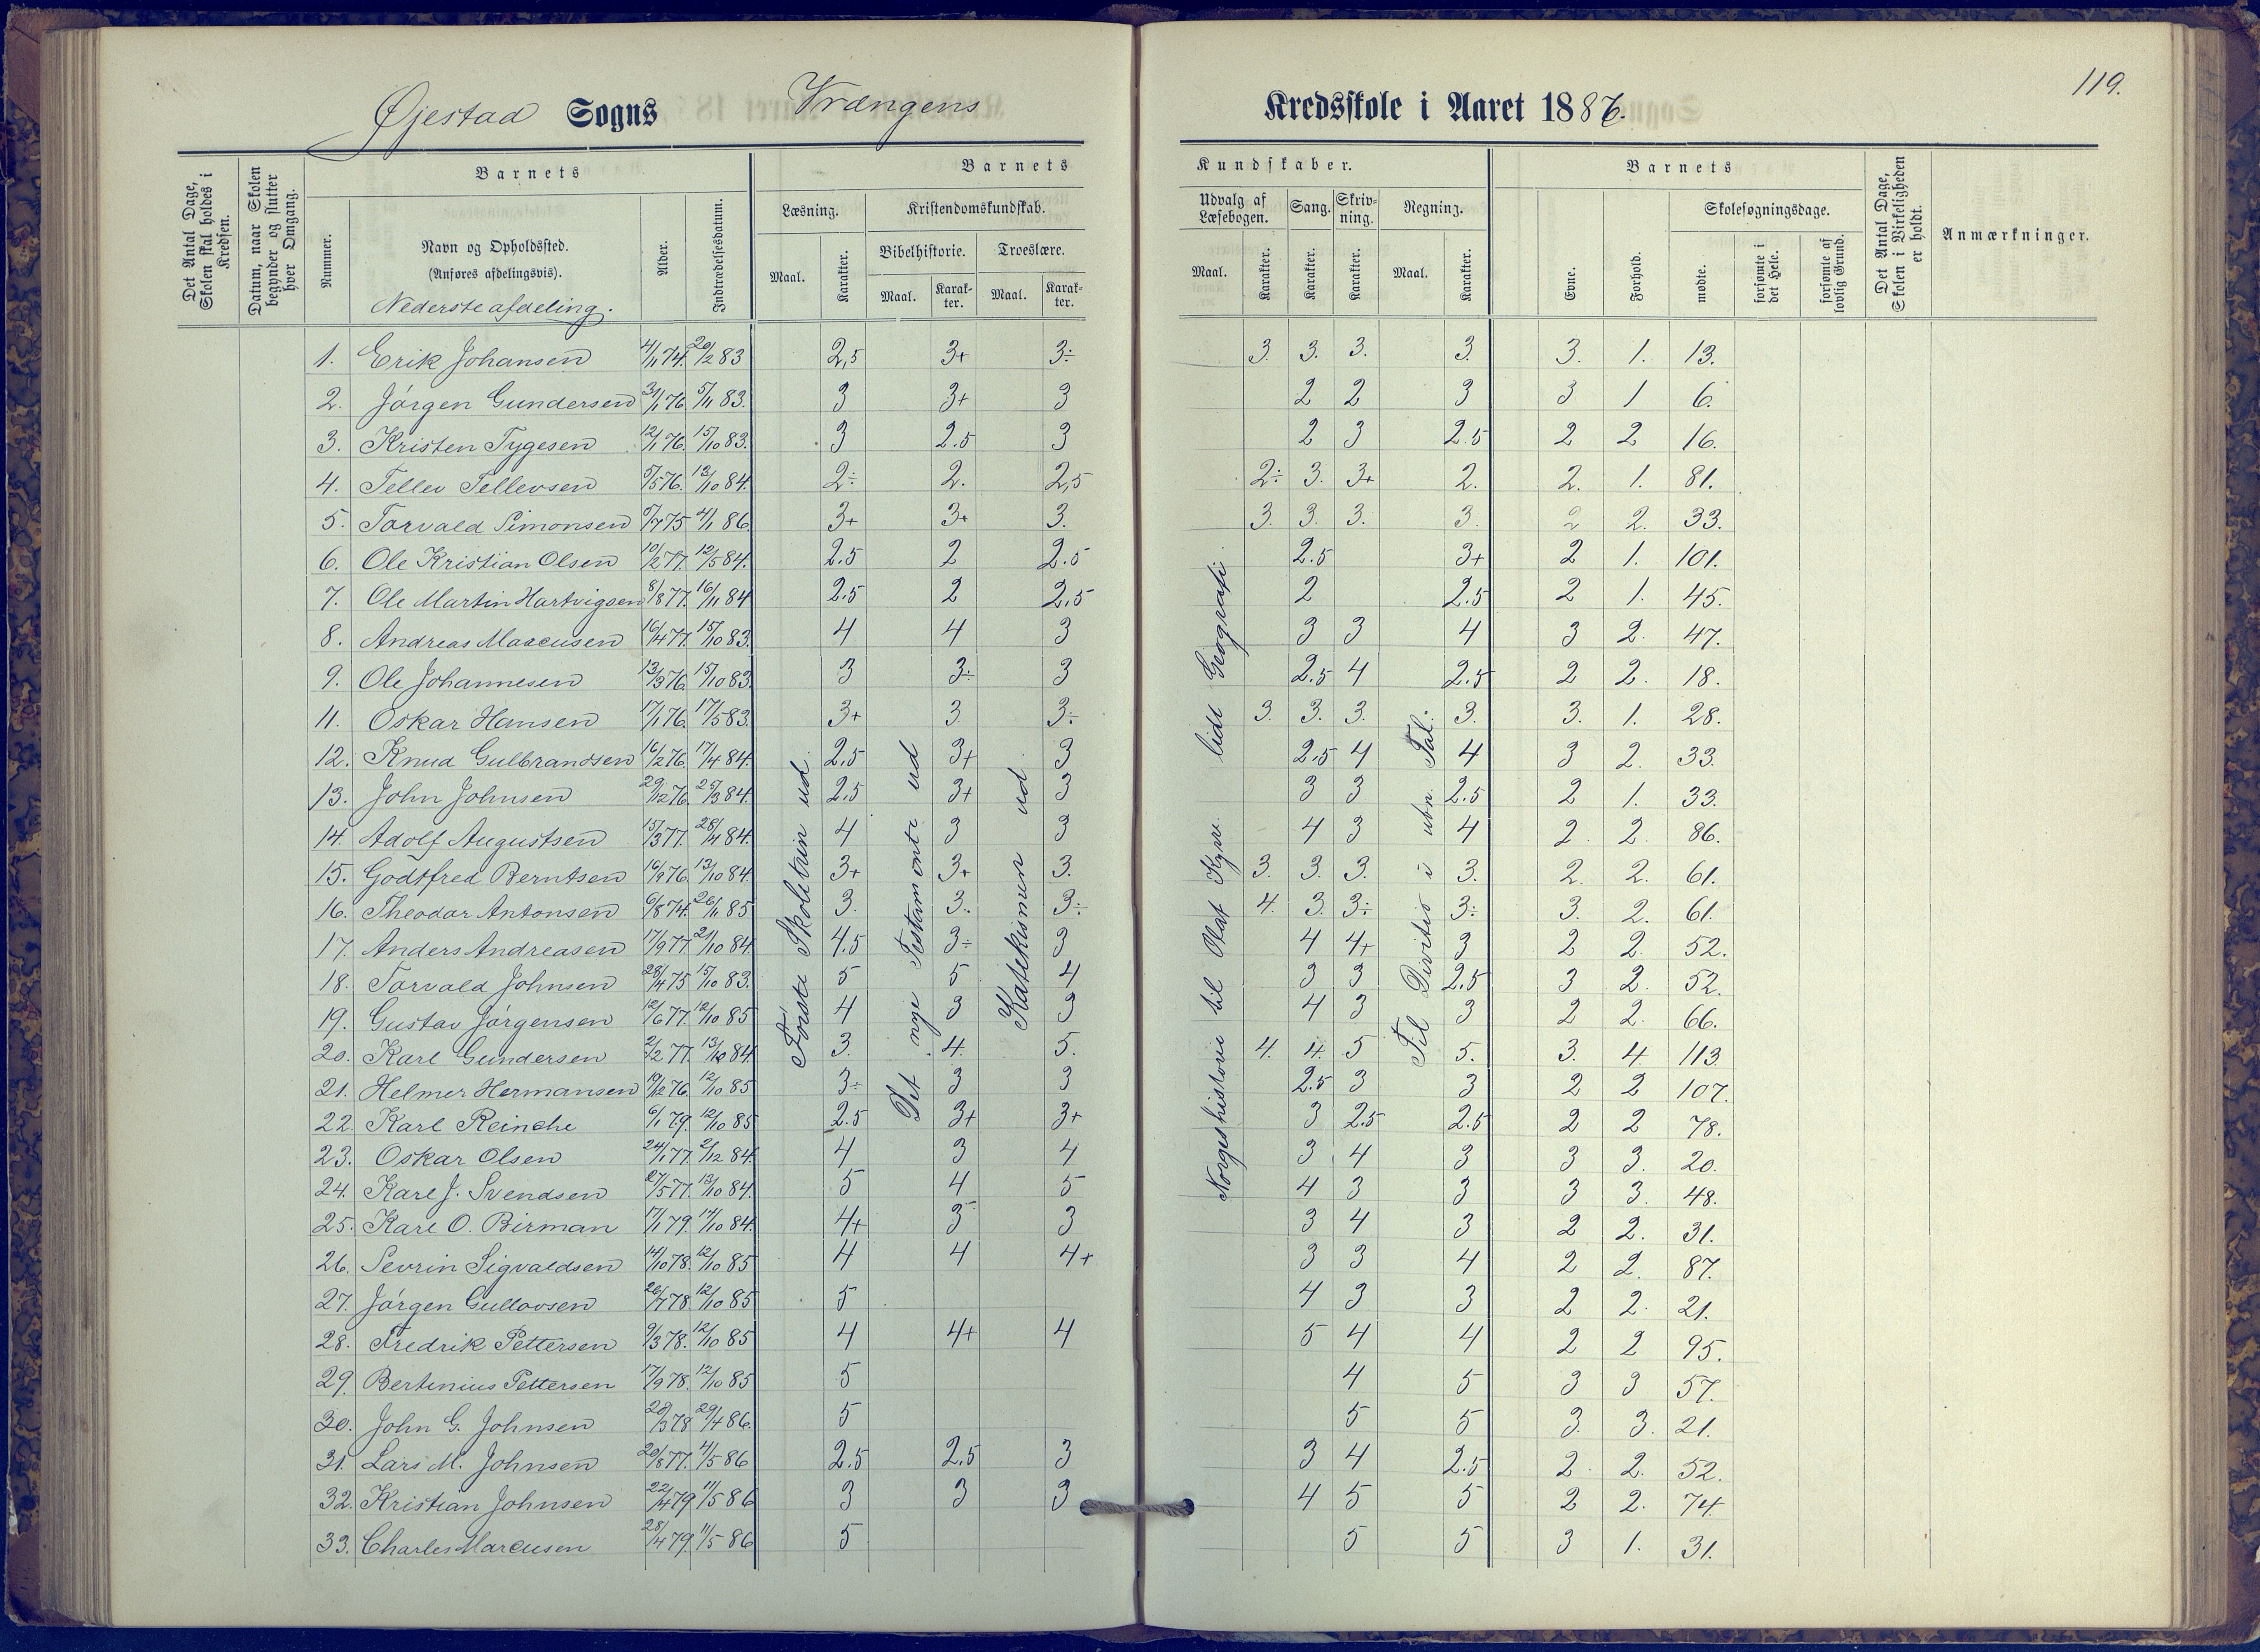 119.
Øjestad Sogns Vrængens Kredsskole i Aaret 1886.
Det Antal Dage, Skolen skal holdes i Kredsen.
Datum, naar Skolen begynder og slutter hver Omgang.
Barnets
Nummer.
Navn og Opholdssted.
(Anføres afdelingsvis).
Nederste afdeling.
Alder.
Indtrædelsesdatum.
Barnets Kundskaber.
Læsning.
Maal. Karakter.
Kristendomskundskab.
Bibelhistorie. Troeslære.
Maal. Karakter. Maal. Karakter.
Udvalg af Læsebogen.
Maal. Karakter.
Sang. Karakter.
Skrivning. Karakter.
Regning.
Maal. Karakter.
Barnets
Evne. Forhold.
Skolesøgningsdage.
mødte. forsømte i det Hele. forsømte af lovlig Grund.
Det Antal Dage, Skolen i Virkeligheden er holdt.
Anmærkninger.
Første Skoletrin ud.
Det nye Testamente ud
Katekismen ud
Norgeshistorie til Olaf Kyrre. lidt Geografi.
Til Division i ubn. Tal.
1. Erik Johansen 4/1 74. 20/2 83 2,5 3+ 3÷ 3. 3. 3. 3. 3. 1. 13.
2. Jørgen Gundersen 31/1 76. 5/11 83. 3 3+ 3 2 2 3 3 1 6.
3. Kristen Tygesen 12/1 76. 15/10 83. 3 2.5 3 2 3 2.5 2 2 16.
4. Tellev Tellevsen 5/5 76. 13/10 84. 2÷ 2. 2,5 2÷ 3. 3+ 2. 2. 1. 81.
5. Torvald Simonsen 5/7 75 4/1 86. 3+ 3+ 3. 3. 3. 3. 3. 2 2. 33.
6. Ole Kristian Olsen 10/2 77. 12/5 84. 2.5 2 2.5 2.5 3+ 2 1. 101.
7. Ole Martin Hartvigsen 8/8 77. 16/11 84 2.5 2 2,5 2 2.5 2 1. 45.
8. Andreas Marcusen 16/4 77. 15/10 83. 4 4 3 3 3 4 3 2. 47.
9. Ole Johannesen 13/3 76. 15/10 83. 3 3÷ 3 2.5 4 2.5 2 2. 18.
11. Oskar Hansen 17/1 76. 17/5 83. 3+ 3 3÷ 3. 3. 3. 3. 3. 1. 28.
12. Knud Gulbrandsen 16/2 76 17/4 84. 2.5 3+ 3 2.5 4 4 3 2. 33.
13. John Johnsen 29/12 76. 25/3 84. 2.5 3+ 3 3 3 2.5 2 1. 33.
14. Adolf Augustsen 15/3 77. 28/4 84. 4 3 3 4 3 4 2 2. 86.
15. Godtfred Berntsen 16/9 76. 13/10 84. 3+ 3+ 3. 3. 3. 3. 3. 2. 2. 61.
16. Theodor Antonsen 6/8 74. 26/11 85 3. 3. 3÷ 4. 3. 3÷ 3÷ 3. 2. 61.
17. Anders Andreasen 17/9 77. 21/10 84. 4.5 3÷ 3 4 4+ 3 2 2. 52.
18. Torvald Johnsen 28/4 75 15/10 83. 5 5 4 3 3 2.5 3 2. 52.
19. Gustav Jørgensen 12/6 77. 12/10 85 4 3 3 4 3 3 2 2. 66.
20. Karl Gundersen 2/2 77. 13/10 84. 3. 4. 5. 4. 4. 5 5. 3. 4 113.
21. Helmer Hermansen 19/12 76. 12/10 85 3÷ 3 3 2.5 3 3 2 2 107.
22. Karl Reinche 6/1 79. 12/10 85 2.5 3+ 3+ 3 2.5 2.5 2 2 78.
23. Oskar Olsen 24/1 77. 2/12 84. 4 3 4 3 4 3 3 3. 20.
24. Karl J. Svendsen 27/5 77. 13/10 84. 5 4 5 4 3 3 3 3. 48.
25. Karl O. Birman 17/1 79. 14/10 84. 4+ 3 3 3 4 3 2 2. 31.
26. Sevrin Sigvaldsen 14/10 78. 12/10 85 4 4 4+ 3 3 4 2 2. 87.
27. Jørgen Gullovsen 26/7 78. 12/10 85 5 4 3 3 2 2. 21.
28. Fredrik Pettersen 9/3 78. 12/10 85 4 4+ 4 5 4 4 2 2 95.
29. Bertinius Pettersen 17/9 78. 12/10 85 5 4 5 3 3 57.
30. John G. Johnsen 20/3 78 29/4 86. 5 5 5 3. 3. 21.
31. Lars M. Johnsen 20/8 77. 4/5 86 2.5 2.5 3 3 4 2.5 2 2. 52.
32. Kristian Johnsen 22/4 79 11/5 86 3 3 3 4 5 5 2 2. 74.
33. Charles Marcusen 28/4 79. 11/5 86 5 5 5 3 1. 31.